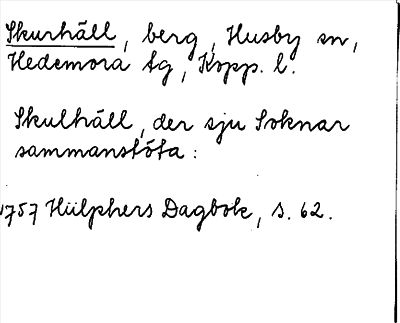 Skurhäll, berg, Husby sn,
Hedemora tg, Kopp. l.
Skulhäll, der sju Soknar
sammanstöta:
1757 Hülphers Dagbok, s. 62.